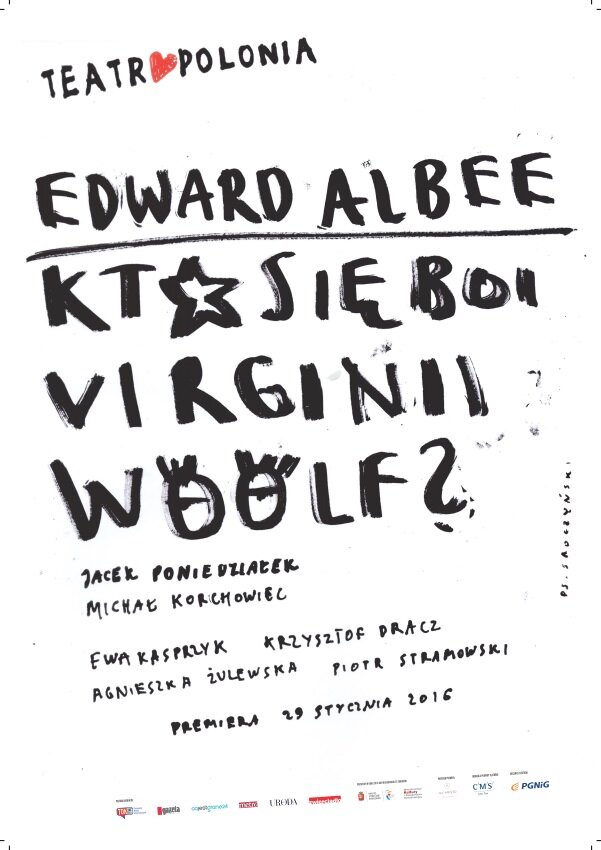 TEATR POLONIA
EDWARD ALBEE
KTO SIĘ BOI
VIRGINII
WOOLF?
JACEK PONIEDZIAŁEK
MICHAŁ KORCHOWIEC
EWA KASPRZYK KRZYSZTOF DRACZ
AGNIESZKA ŻULEWSKA PIOTR STRAMOWSKI
PREMIERA 29 STYCZNIA 2016
gazeta
URODA
C'M'S'
PGNiG